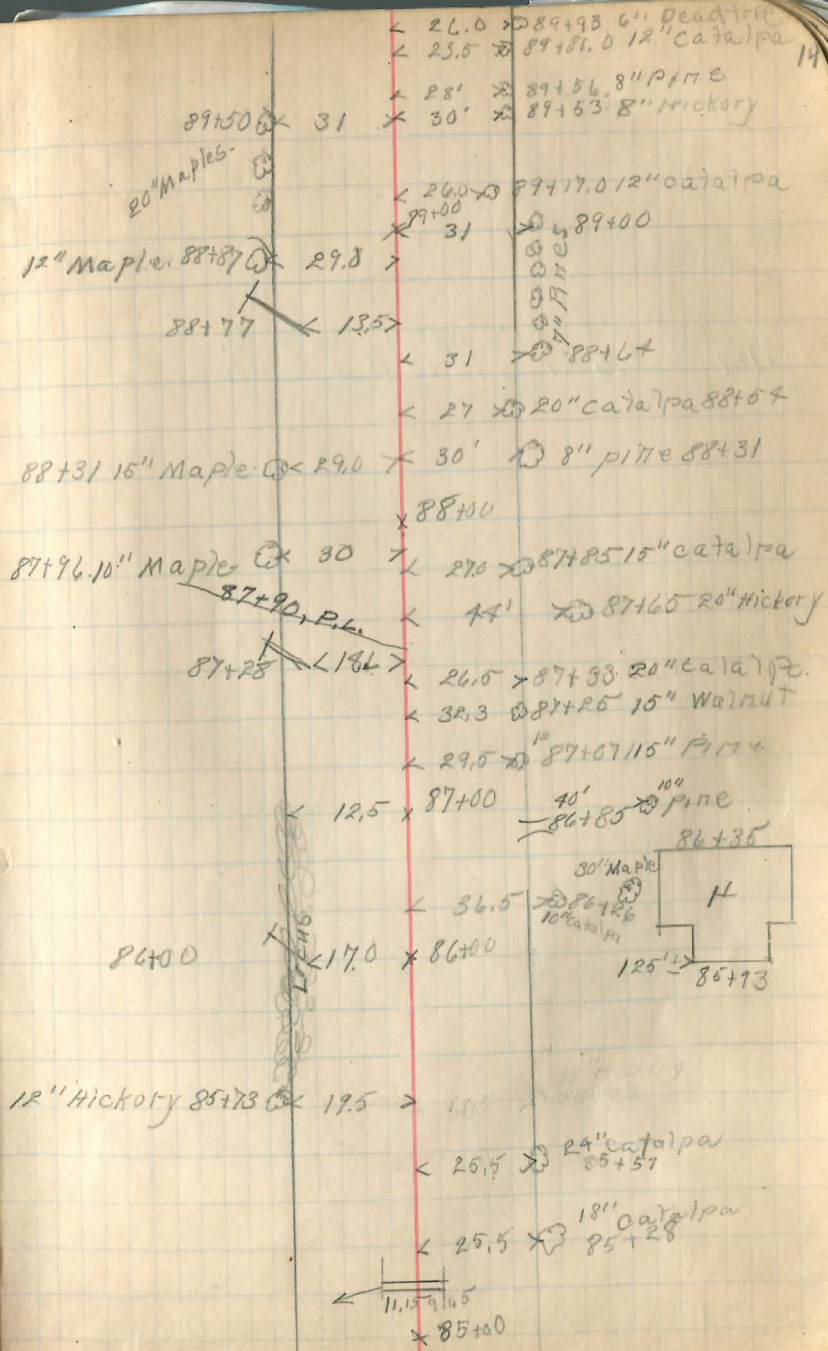 14
26.0 89+93 6" Deadtree
23.5 89+81.0 12" Catalpa
28' 89+56 8" Pine
89+50 31 30' 89+53 8" Hickory
20" Maples.
26.0 89+17.0 12" Catalpa
89+00
31 89+00
12" Maple. 88+87 29.8
7" Pines
88+77 13.5
31 88+64
27 20" Catalpa 88+54
88+31 15" Maple 29.0 30' 8" pine 88+31
88+00
87+96. 10" Maple 30
27.0 87+85 15" Catalpa
87+90, P.L.
44' 87+65 20" Hickory
87+28
26.5 87+33 20" Catalpa.
32.3 87+25 15" Walnut
29.5 87+07 15" Pine
12.5 87+00 40' 10" pine
86+85
86+35
30" Maple
H
36.5 86+26
10" Catalpa
Locus
86+00 17.0 86+00
125'±
85+93
12" Hickory 85+73 19.5
25.5 24" Catalpa
85+57
25.5 18" Catalpa
85+28
85+00